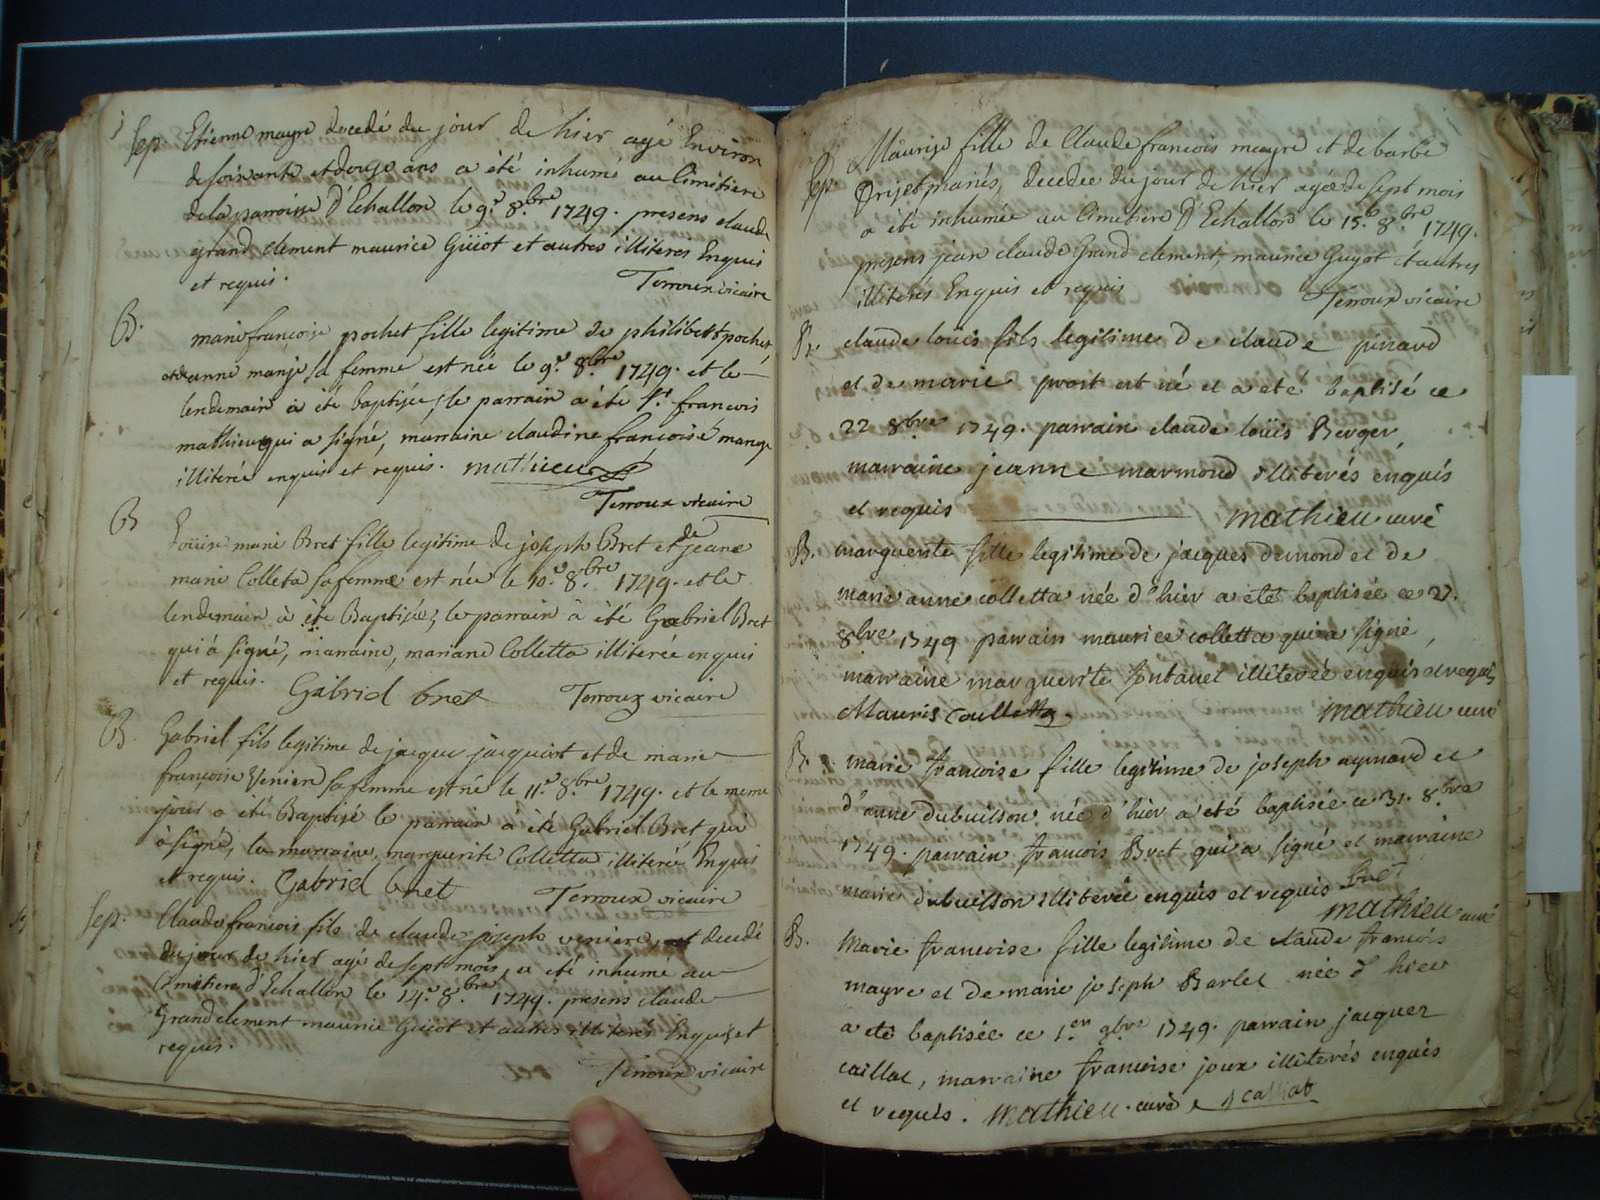 Sep. Etienne mayre decedé du jour de hier agé Environ
de soixante et douze ans a été inhumé au Cimétiere
de la parroisse D'Echallon le 9.e 8.bre 1749. presens claude
grand clement maurice Guiiot et autres illiteres Enquis
et requis. Terroux vicaire
B. marie françoise pochet fille legitime de philibert pochet
et danne manje sa femme est née le 9.e 8.bre 1749. et le
lendemain a été baptisée, le parrain a été Sr françois
mathieu qui a signé, marraine claudine françoise manje
illiterée enquis et requis. mathieu
Terroux vicaire
B Loüise marie Bret fille legitime de joseph Bret et de jeane
marie Colleta sa femme est née le 10.e 8.bre 1749. et le
lendemain à été Baptisée, le parrain à été Gabriel Bret
qui à signé, marraine, mariane Colletta illiterée enquis
et requis. Gabriel bret Terroux vicaire
B. Gabriel fils legitime de jacque jacquiot et de marie
françoise Venien sa femme est né le 11.e 8.bre 1749. et le meme
jour a été Baptisé le parrain a été Gabriel Bret qui
à signé, la marraine, marguerite Colletta illiteré Enquis
et requis. Gabriel bret Terroux vicaire
Sep. Claude françois fils de claude joseph veniere, decedé
du jour de hier agé de sept mois, a été inhumé au
Cimétiere d'Echallon le 14.e 8.bre 1749. presens claude
Grand clement maurice Guiiot et autres illiterés Enquis et
requis.
Terroux vicaire
Sep. Maurise fille de Claude francois mayre et de barbe
mariés, decedée du jour de hier agée de sept mois
a été inhumée au cimetiere D'Echallon le 15.e 8.bre 1749.
presens jean claude Grand clement, maurice Guyot et autres
illiterés Enquis et requis Terroux vicaire
B. claude loüis fils legitime de claude pinard
et de marie prost est né et a eté baptisé ce
22 8bre 1749. parrain claude loüis Berger,
marraine jeanne marmond illiterés enquis
et requis mathieu curé
B. marguerite fille legitime de jacques demond et de
marie anne colletta née d'hier a eté baptisée ce 27.
8bre 1749 parrain maurice colletta qui a signé,
marraine marguerite illiterée enquis et requis,
Mauris Coulletta. mathieu curé
B. marie francoise fille legitime de joseph aymard et
d'anne dubuisson née d'hier a eté baptisée ce 31. 8.bre
1749. parrain francois Bret qui a signé et marraine
marie dubuisson illiterée enquis et requis Bret
mathieu curé
B. Marie francoise fille legitime de claude francois
mayre et de marie joseph Barlet née d'hier
a eté baptisée ce 1.er 9bre 1749. parrain jacquez
caillat, marraine francoise joux illiterés enquis
et requis. mathieu curé j caillat